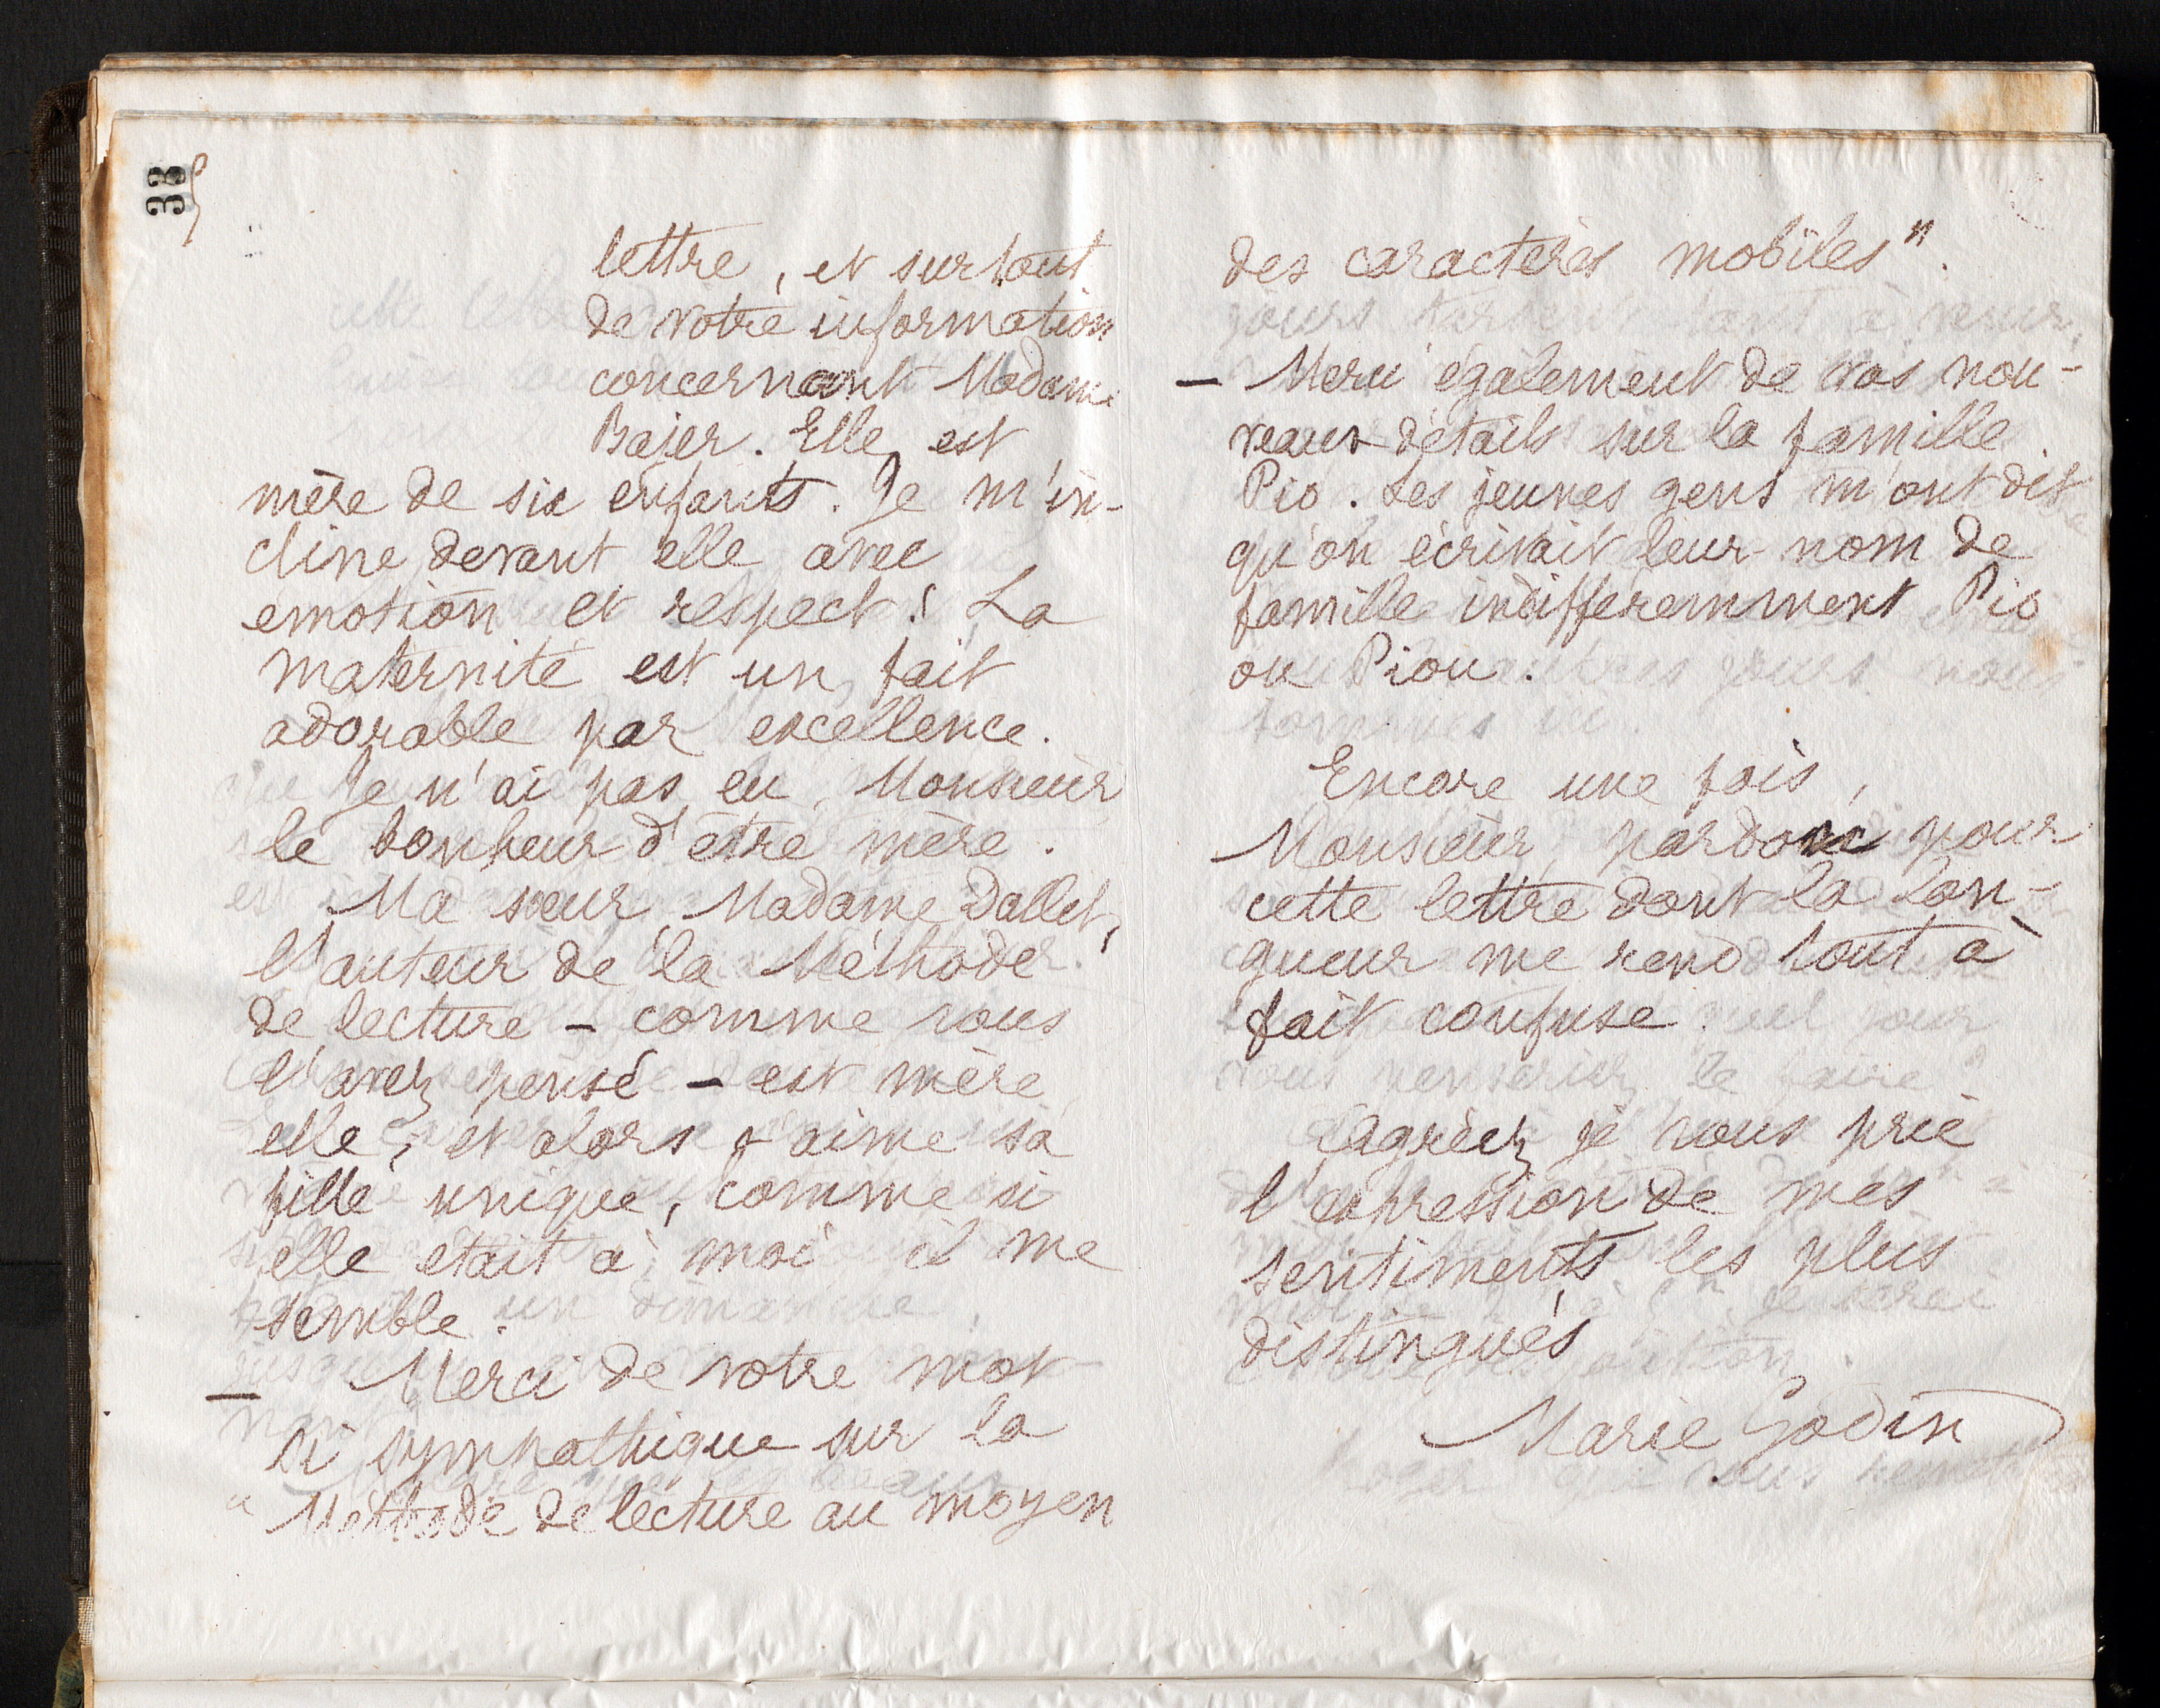 33
lettre, et surtout
de votre information
concernant Madame
Bajer. Elle est
mère de six enfants. Je m'in-
cline devant elle avec
emotion et respect! La
maternité est un fait
adorable par excellence.
Je n'ai pas eu, Monsieur
le bonheur d'être mère.
Ma sœur, Madame Dallet,
l'auteur de la Méthode
de lecture — comme vous
l'avez pensé — est mère
elle; et alors j'aime sa
fille unique, comme si
elle était à moi il me
semble.
— Merci de votre mot
si sympathique sur la
"Méthode de lecture au moyen
des caractères mobiles".
— Merci également de vos nou-
veaux détails sur la famille
Pio. Les jeunes gens m'ont dit
qu'on écrivait leur nom de
famille indifféremment Pio
ou Piou.
Encore une fois,
Monsieur, pardon pour
cette lettre dont la lon-
gueur me rend tout à
fait confuse.
Agréez je vous prie
l'expression de mes
sentiments les plus
distingués
Marie Godin